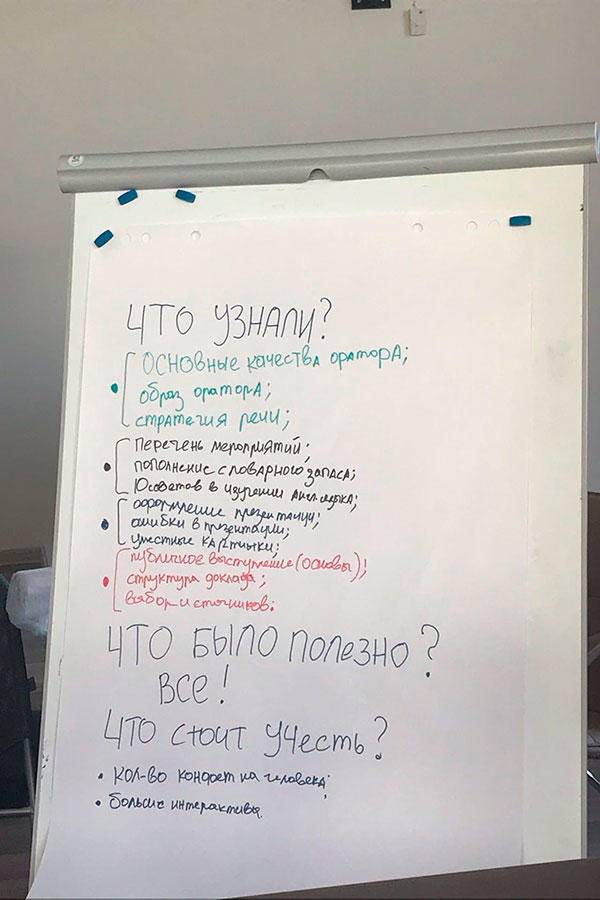 ЧТО УЗНАЛИ?
ОСНОВНЫЕ качества оратора;
образ оратора;
стратегия речи;
Перечень мероприятий;
пополнение словарного запаса;
10 советов в изучении англ. языка;
оформление презентации;
ошибки в презентации;
уместные картинки;
публичное выступление (основы);
структура доклада;
выбор источников.
ЧТО БЫЛО ПОЛЕЗНО?
ВСЕ!
ЧТО СТОИТ УЧЕСТЬ?
• Кол-во конфет на человека;
• больше интерактива.